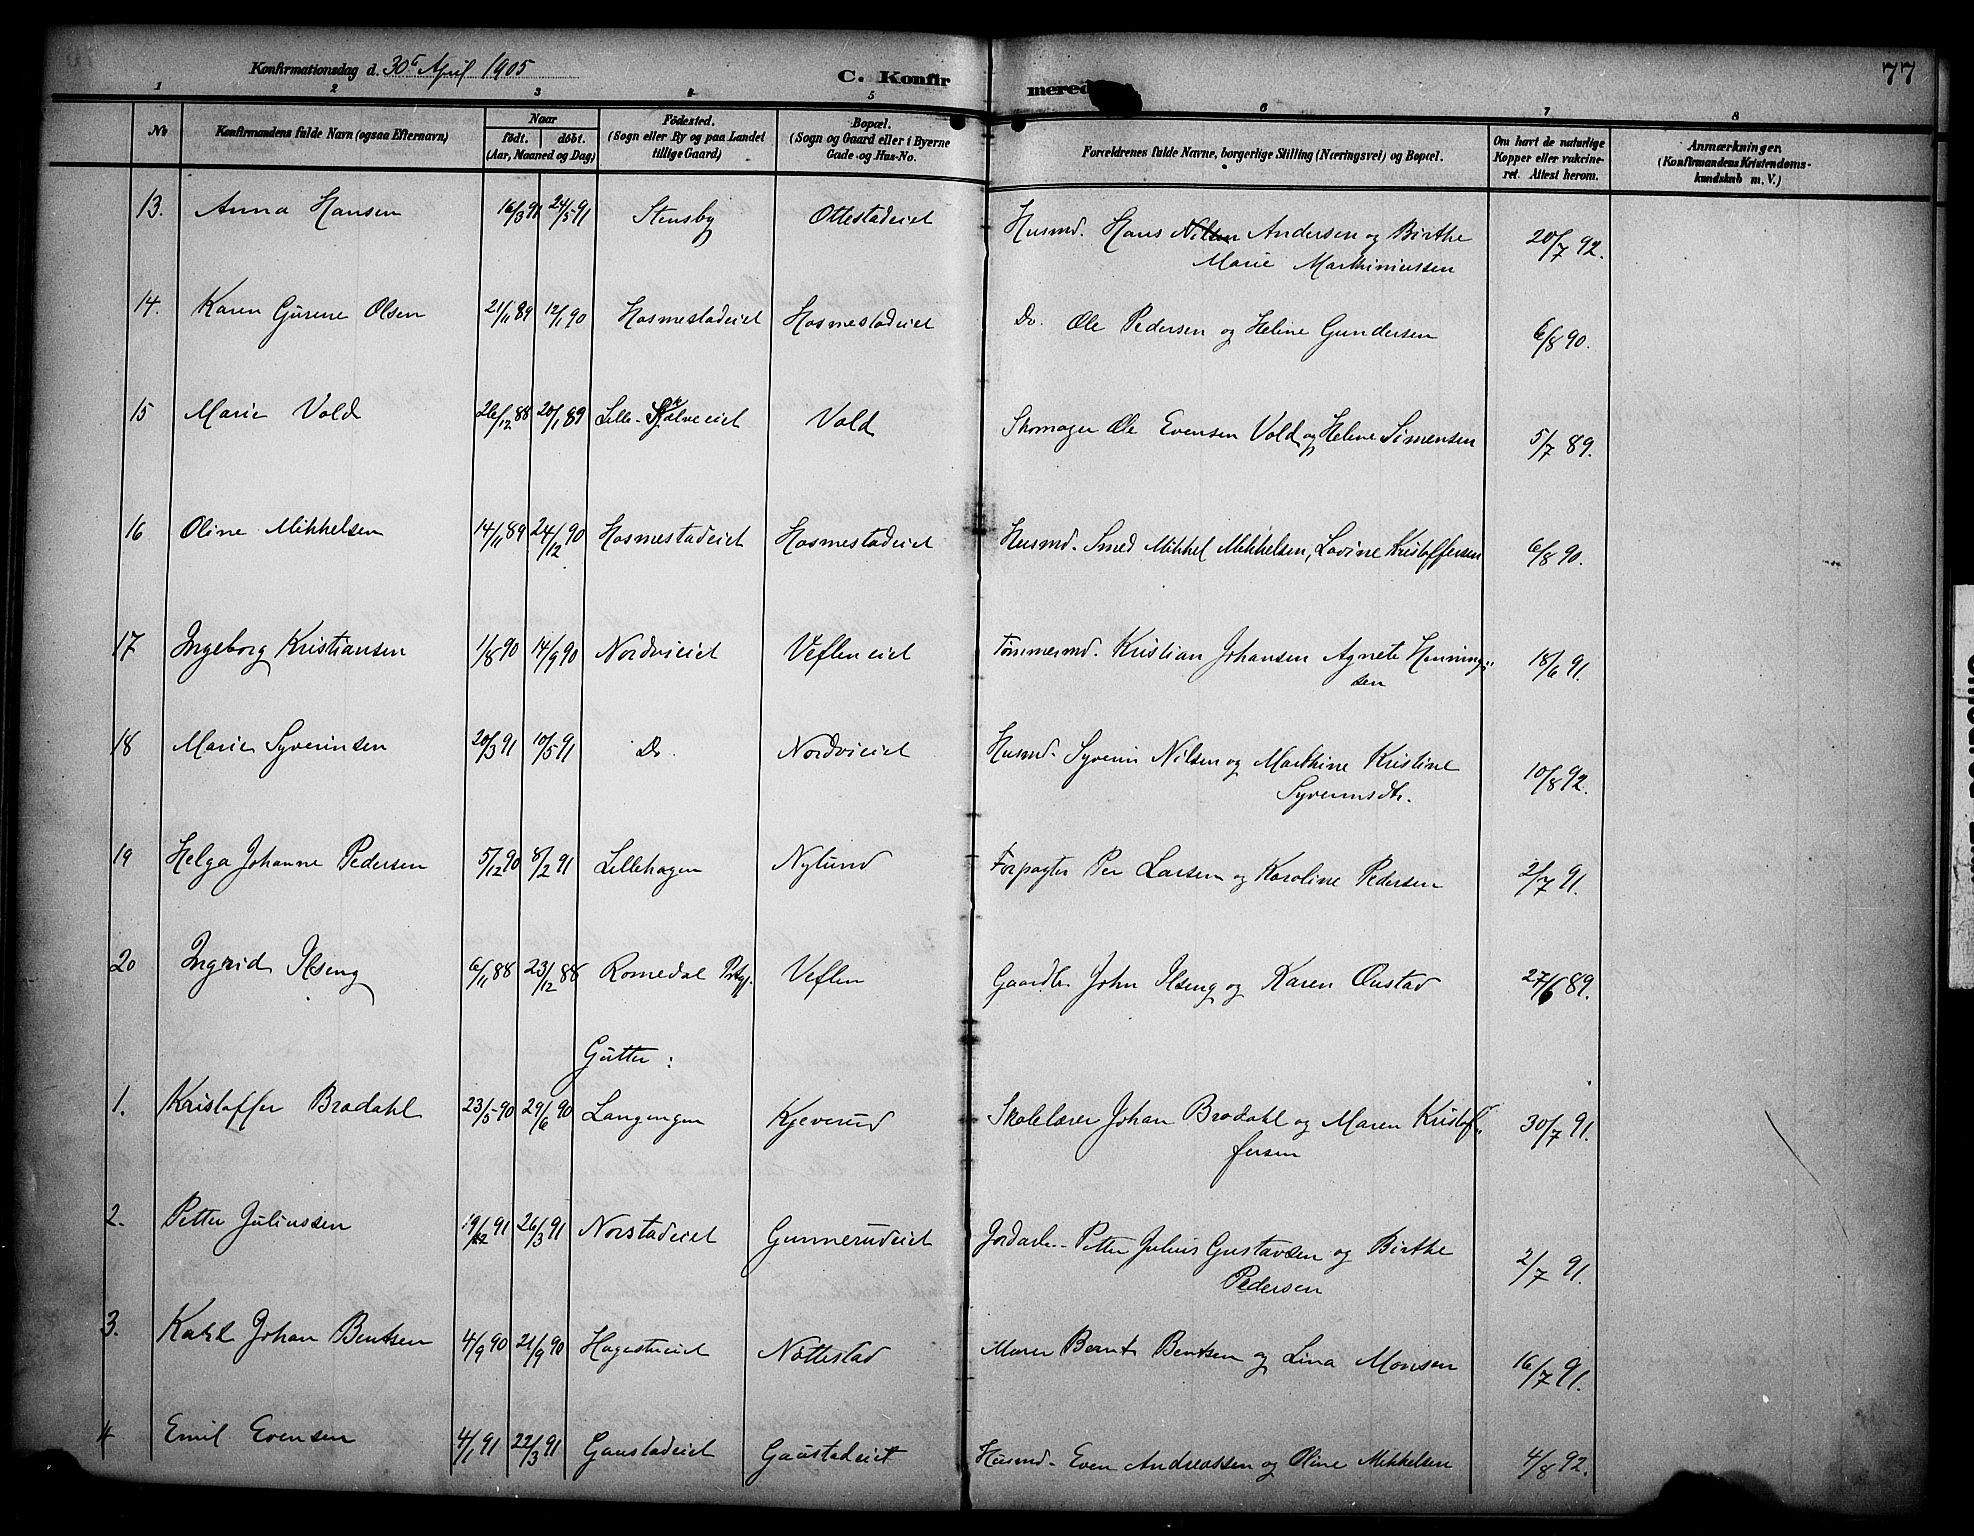 Konfirmationsdag d. 30te April 1905
C. Konfirmerede
77
1 2 3 4 5 6 7 8
No
Konfirmandens fulde Navn (ogsaa Efternavn)
Naar
födt. döbt.
(Aar, Maaned og Dag)
Födested.
(Sogn eller By og paa Landet
tillige Gaard)
Bopæl.
(Sogn og Gaard eller i Byerne
Gade og Hus-No.
Forældrenes fulde Navne, borgerlige Stilling (Næringsvei) og Bopæl.
Om havt de naturlige
Kopper eller vakcine-
ret. Attest herom.
Anmærkninger.
(Konfirmandens Kristendoms-
kundskab m. V.)
13. Anna Hansen 16/3 91 24/5 91 Stensby Ottestadeiet Husmd. Hans Nilsen Andersen og Birthe 20/7 92.
Marie Marthiniussen
14. Karen Gurene Olsen 21/11 89 12/1 90 Hosmestadeiet Hosmestadeiet Do. Ole Pedersen og Heline Gundersen 6/8 90.
15 Marie Vold 26/12 88 20/1 89 Lille-Skjalveeiet Vold Skomager Ole Evensen Vold og Helene Simensen 5/7 89.
16 Oline Mikkelsen 14/11 89 24/12 90 Hosmestadeiet Hosmestadeiet Husmd. Smed Mikkel Mikkelsen, Lovine Kristoffersen 6/8 90.
17 Ingeborg Kristiansen 1/8 90 14/9 90 Nordvieiet Vefleneiet Tømmermd. Kristian Johansen Agnete Henning- 18/6 91.
sen
18 Marie Syverinsen 20/3 91 10/5 91 Do. Nordvieiet Husmd. Syverin Nilsen og Marthine Kristine 10/8 92.
Syverinsdtr.
19 Helga Johanne Pedersen 5/12 90 8/2 91 Lillehagen Nylund Forpagter Per Larsen og Karoline Pedersen 2/7 91.
20 Ingrid Ilseng 6/11 88 23/12 88 Romedal Prstgj. Veflen Gaardbr. John Ilseng og Karen Oustad 27/6 89.
Gutter:
1. Kristoffer Brodahl 23/5 90 29/6 90 Langengen Kjeverud Skolelærer Johan Brodahl og Maren Kristof- 30/7 91.
fersen
2. Petter Juliussen 19/12 91 26/3 91 Norstadeiet Gunnerudeiet Jordarb. Petter Julius Gustavsen og Birthe 2/7 91.
Pedersen
3. Karl Johan Bentsen 4/9 90 21/9 90 Hagestueiet Nøttestad Murer Bernt Bentsen og Lina Monsen 16/7 91.
4 Emil Evensen 4/1 91 22/3 91 Gaustadeiet Gaustadeiet Husmd. Even Andreassen og Oline Mikkelsen 4/8 92.